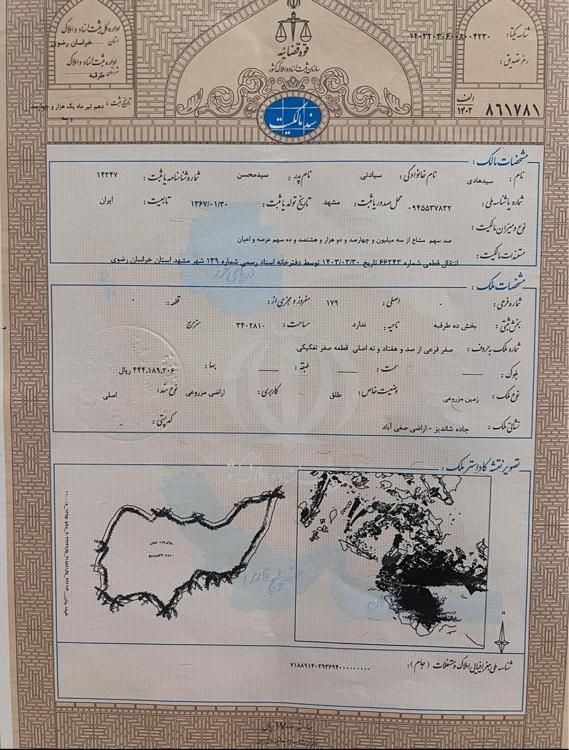 اداره کل ثبت اسناد و املاک
استان: خراسان رضوی
اداره ثبت اسناد و املاک
شهرستان: طرقبه
تاریخ ثبت: دهم تیر ماه یک هزار و چهارصد و سه
قوه قضائیه
سازمان ثبت اسناد و املاک کشور
سند مالکیت
شناسه یکتا: ۱۴۰۳۲۰۳۰۶۰۰۸۰۰۴۲۳۰
رمز تصدیق:
الف
۱۴۰۲
۸۶۱۷۸۱
مشخصات مالک:
نام: سیدهادی نام خانوادگی: سیادتی نام پدر: سیدمحسن شماره شناسنامه یا ثبت: ۱۴۳۴۷
شماره یا شناسه ملی: ۰۹۴۵۵۳۷۸۳۲ محل صدور یا ثبت: مشهد تاریخ تولد یا ثبت: ۱۳۶۷/۰۱/۳۰ تابعیت: ایران
نوع و میزان مالکیت:
صد سهم مشاع از سه میلیون و چهارصد و دو هزار و هشتصد و ده سهم عرصه و اعیان
مستندات مالکیت:
انتقال قطعی شماره ۶۶۲۴۳ تاریخ ۱۴۰۳/۰۳/۳۰ توسط دفترخانه اسناد رسمی شماره ۱۳۹ شهر مشهد استان خراسان رضوی
مشخصات ملک:
شماره فرعی: ۰ اصلی: ۱۷۹ مفروز و مجزی از: قطعه: ۰
بخش ثبتی: بخش ده طرقبه ناحیه: ندارد مساحت: ۳۴۰۲۸۱۰ مترمربع
شماره ملک به حروف: صفر فرعی از صد و هفتاد و نه اصلی قطعه صفر تفکیکی
بلوک: سمت: طبقه: بها: ۴۴۴,۱۸۹,۲۰۶ ریال
نوع ملک: زمین مزروعی وضعیت خاص: طلق کاربری: اراضی مزروعی نوع سند: اصلی
نشانی ملک: جاده شاندیز - اراضی صفی آباد کد پستی: -
تصویر نقشه کاداستر ملک:
N
دریای خزر
خلیج فارس
شناسه ملی جغرافیایی املاک و مستغلات (جام): ۷۱۸۸۹۱۴۰۲۹۳۶۹۴۰۰۰۰۰۰۰۰۰